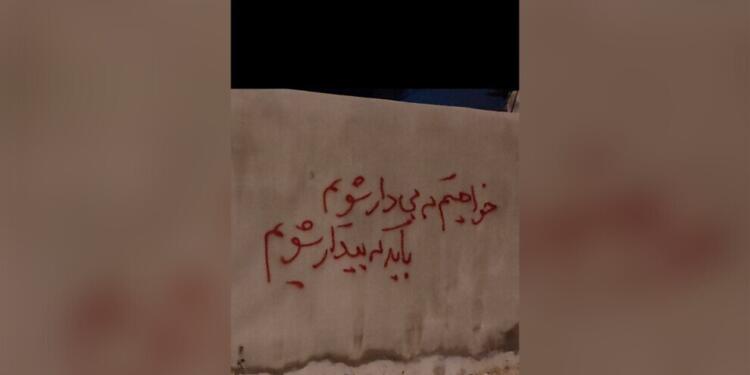 خواهیم که بی دار شویم
باید که بیدار شویم